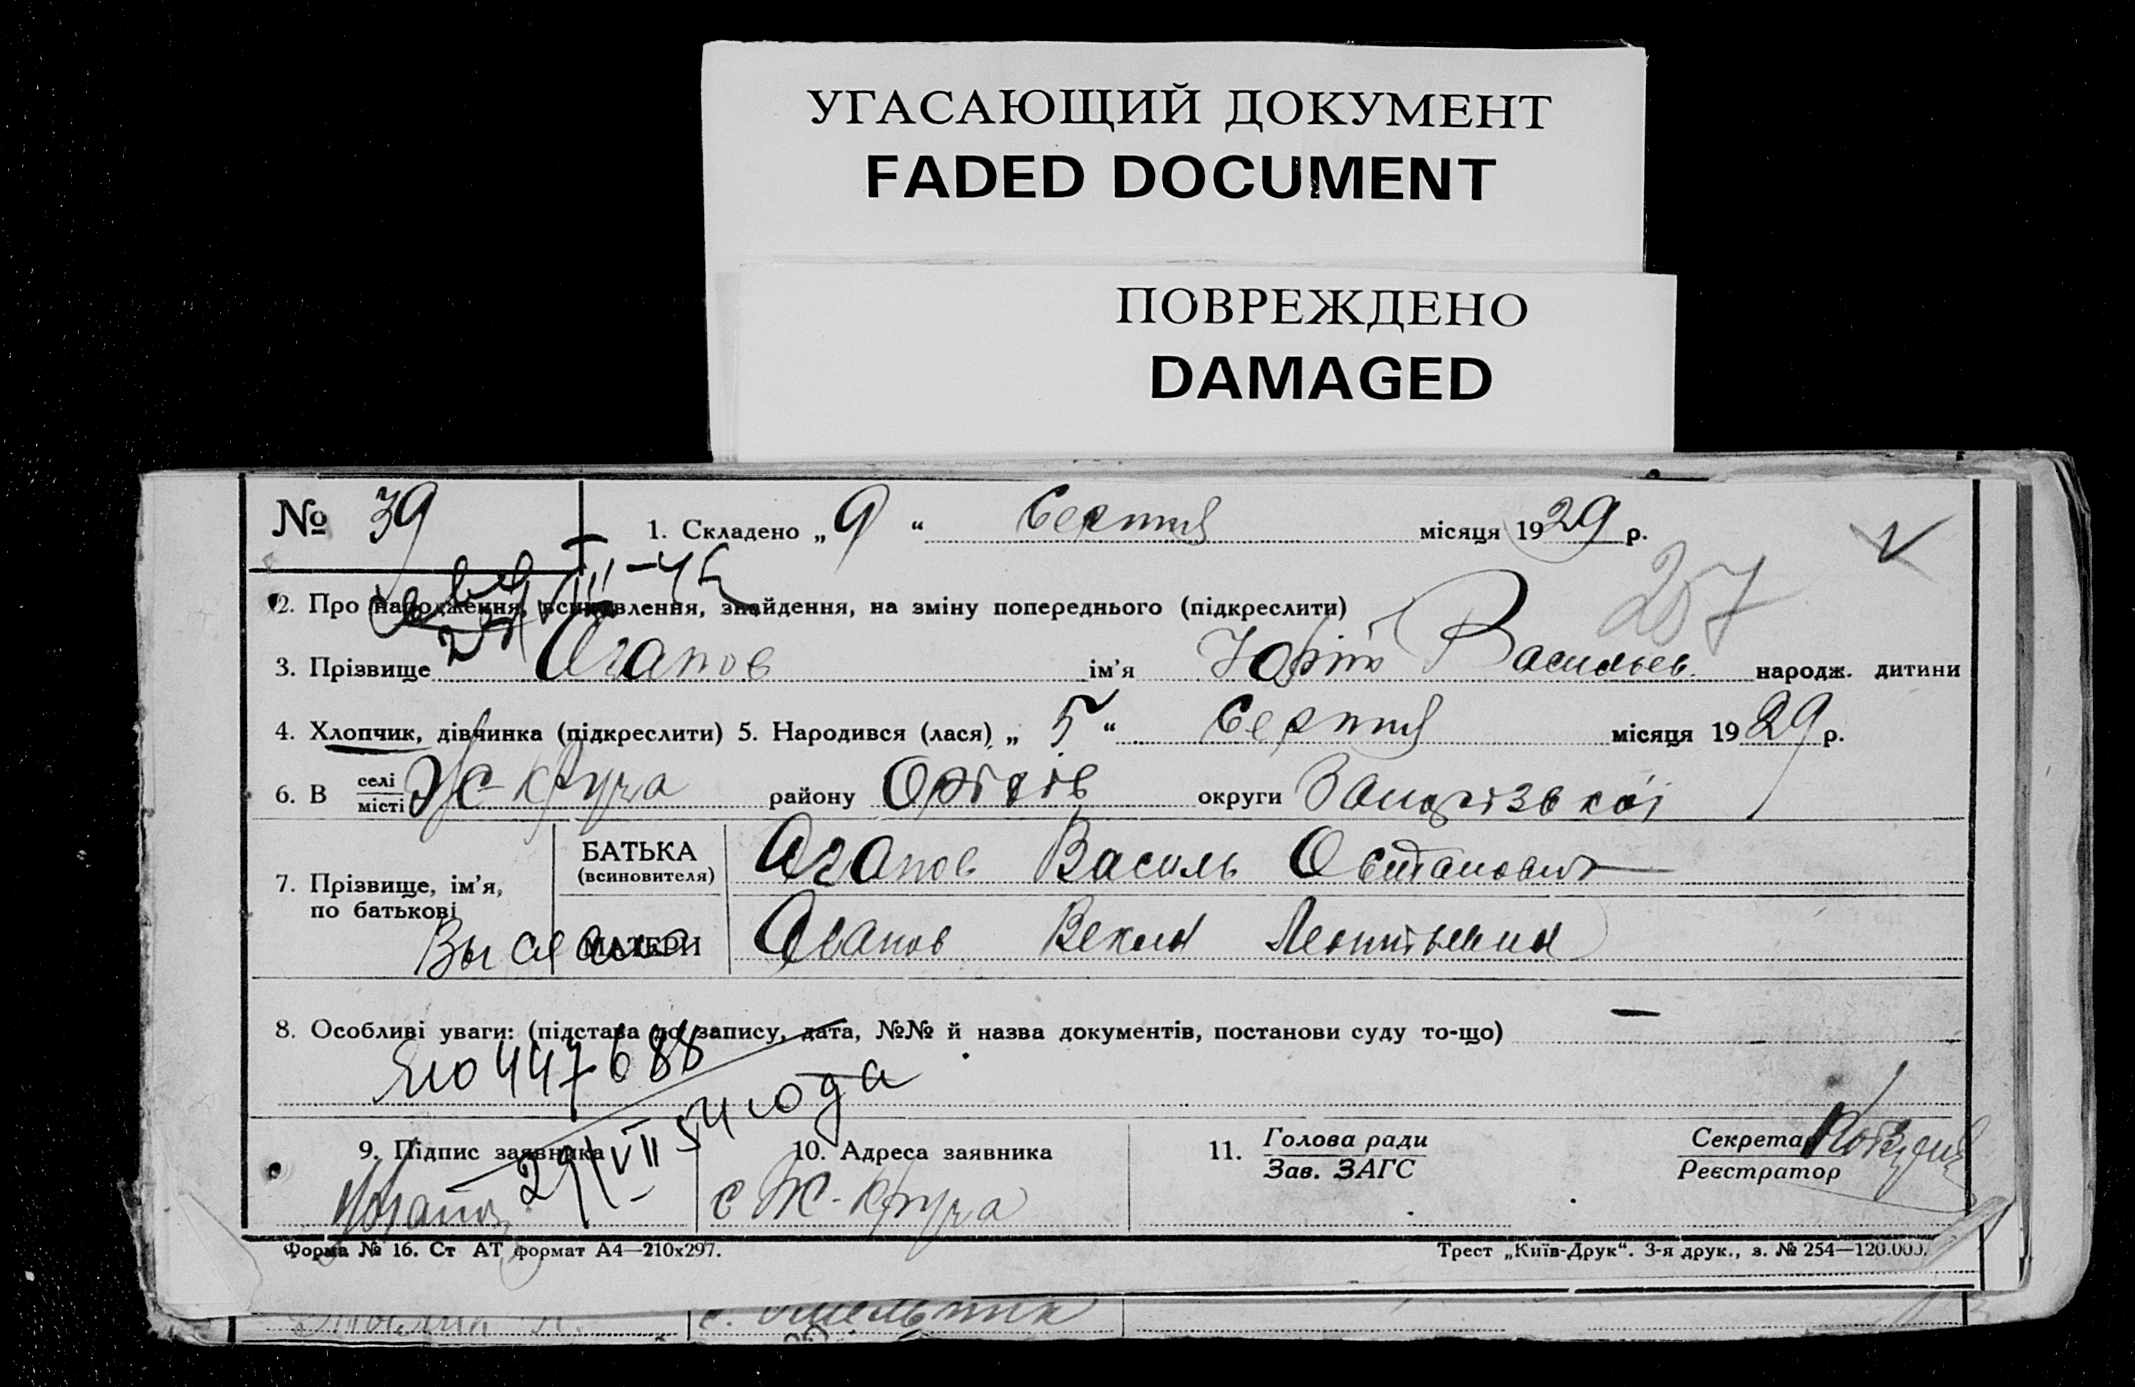 УГАСАЮЩИЙ ДОКУМЕНТ
FADED DOCUMENT
ПОВРЕЖДЕНО
DAMAGED
№ 39
1. Складено „9“ Серпня місяця 1929 р.
VIII-45
257
2. Про народження, всиновлення, знайдення, на зміну попереднього (підкреслити)
3. Прізвище Агапов ім'я Юрій Васильев. народж. дитини
4. Хлопчик, дівчинка (підкреслити) 5. Народився (лася) „5“ Серпня місяця 1929 р.
6. В селі місті Ж-Круча району округи
7. Прізвище, ім'я, по батькові
БАТЬКА (всиновителя) Агапов Василь
МАТЕРИ Агапов Векла
8. Особливі уваги: (підстава до запису, дата, №№ й назва документів, постанови суду то-що) —
447688
29/VII 54 года
9. Підпис заявника
10. Адреса заявника
с Ж-Круча
11. Голова ради
Зав. ЗАГС
Секретар
Реєстратор
Форма № 16. Ст АТ формат А4—210х297.
Трест „Київ-Друк“. 3-я друк., з. № 254—120.000.